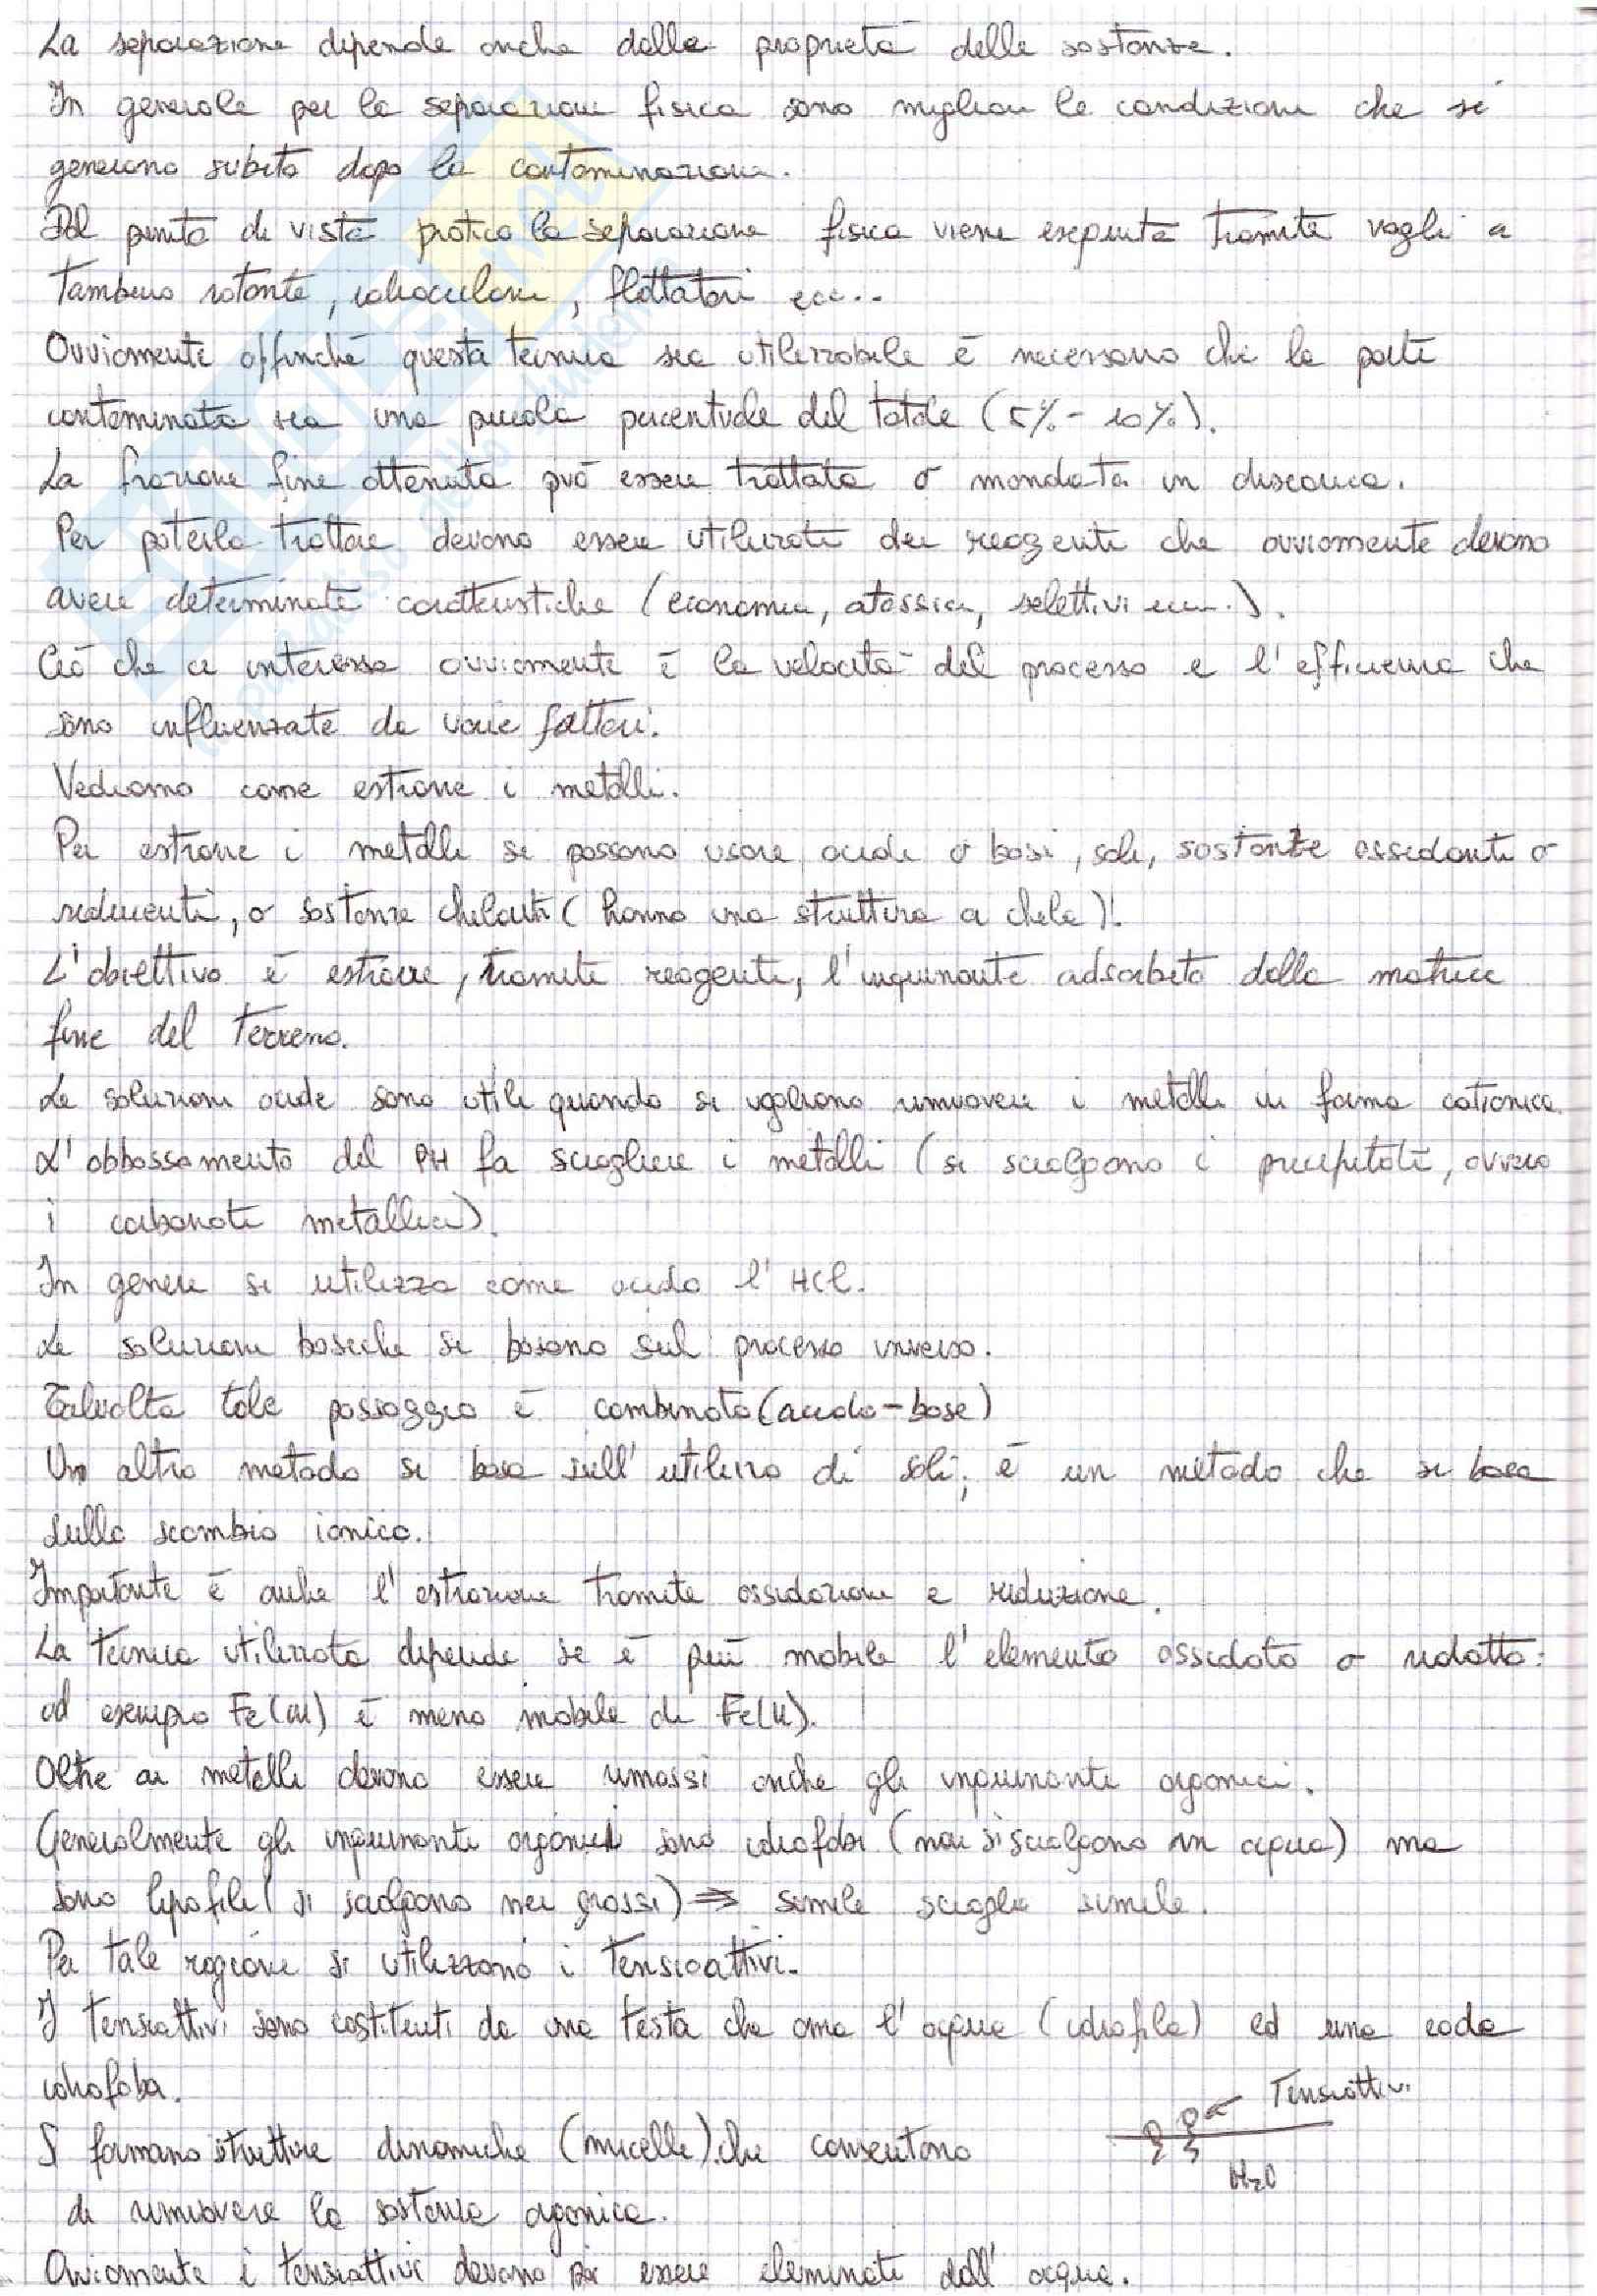 La separazione dipende anche dalle proprietà delle sostanze.
In generale per la separazione fisica sono migliori le condizioni che si
generano subito dopo la contaminazione.
Dal punto di vista pratico la separazione fisica viene eseguita tramite vagli a
tamburo rotante, idrocicloni, flottatori ecc...
Ovviamente affinché questa tecnica sia utilizzabile è necessario che la parte
contaminata sia una piccola percentuale del totale (5%-10%).
La frazione fine ottenuta può essere trattata o mandata in discarica.
Per poterla trattare devono essere utilizzati dei reagenti che ovviamente devono
avere determinate caratteristiche (economici, atossici, selettivi ecc..).
Ciò che ci interessa ovviamente è la velocità del processo e l'efficienza che
sono influenzate da varie fattori.
Vediamo come estrarre i metalli.
Per estrarre i metalli si possono usare acidi o basi, sali, sostanze ossidanti o
riducenti, o sostanze chelanti (hanno una struttura a chela).
L'obiettivo è estrarre, tramite reagenti, l'inquinante adsorbito dalla matrice
fine del terreno.
Le soluzioni acide sono utili quando si vogliono rimuovere i metalli in forma cationica.
L'abbassamento del PH fa sciogliere i metalli (si sciolgono i precipitati, ovvero
i carbonati metallici).
In genere si utilizza come acido l'HCl.
Le soluzioni basiche si basano sul processo inverso.
Talvolta tale passaggio è combinato (acido-base)
Un altro metodo si basa sull'utilizzo di sali; è un metodo che si basa
sullo scambio ionico.
Importante è anche l'estrazione tramite ossidazione e riduzione.
La tecnica utilizzata dipende se è più mobile l'elemento ossidato o ridotto:
ad esempio Fe(III) è meno mobile di Fe(II).
Oltre ai metalli devono essere rimossi anche gli inquinanti organici.
Generalmente gli inquinanti organici sono idrofobi (non si sciolgono in acqua) ma
sono lipofili (si sciolgono nei grassi) ⇒ simile scioglie simile.
Per tale ragione si utilizzano i tensioattivi.
I tensioattivi sono costituiti da una testa che ama l'acqua (idrofila) ed una coda
idrofoba.
Tensioattivi
S formano strutture dinamiche (micelle) che consentono
H2O
di rimuovere la sostanza organica.
Ovviamente i tensioattivi devono poi essere eliminati dall'acqua.